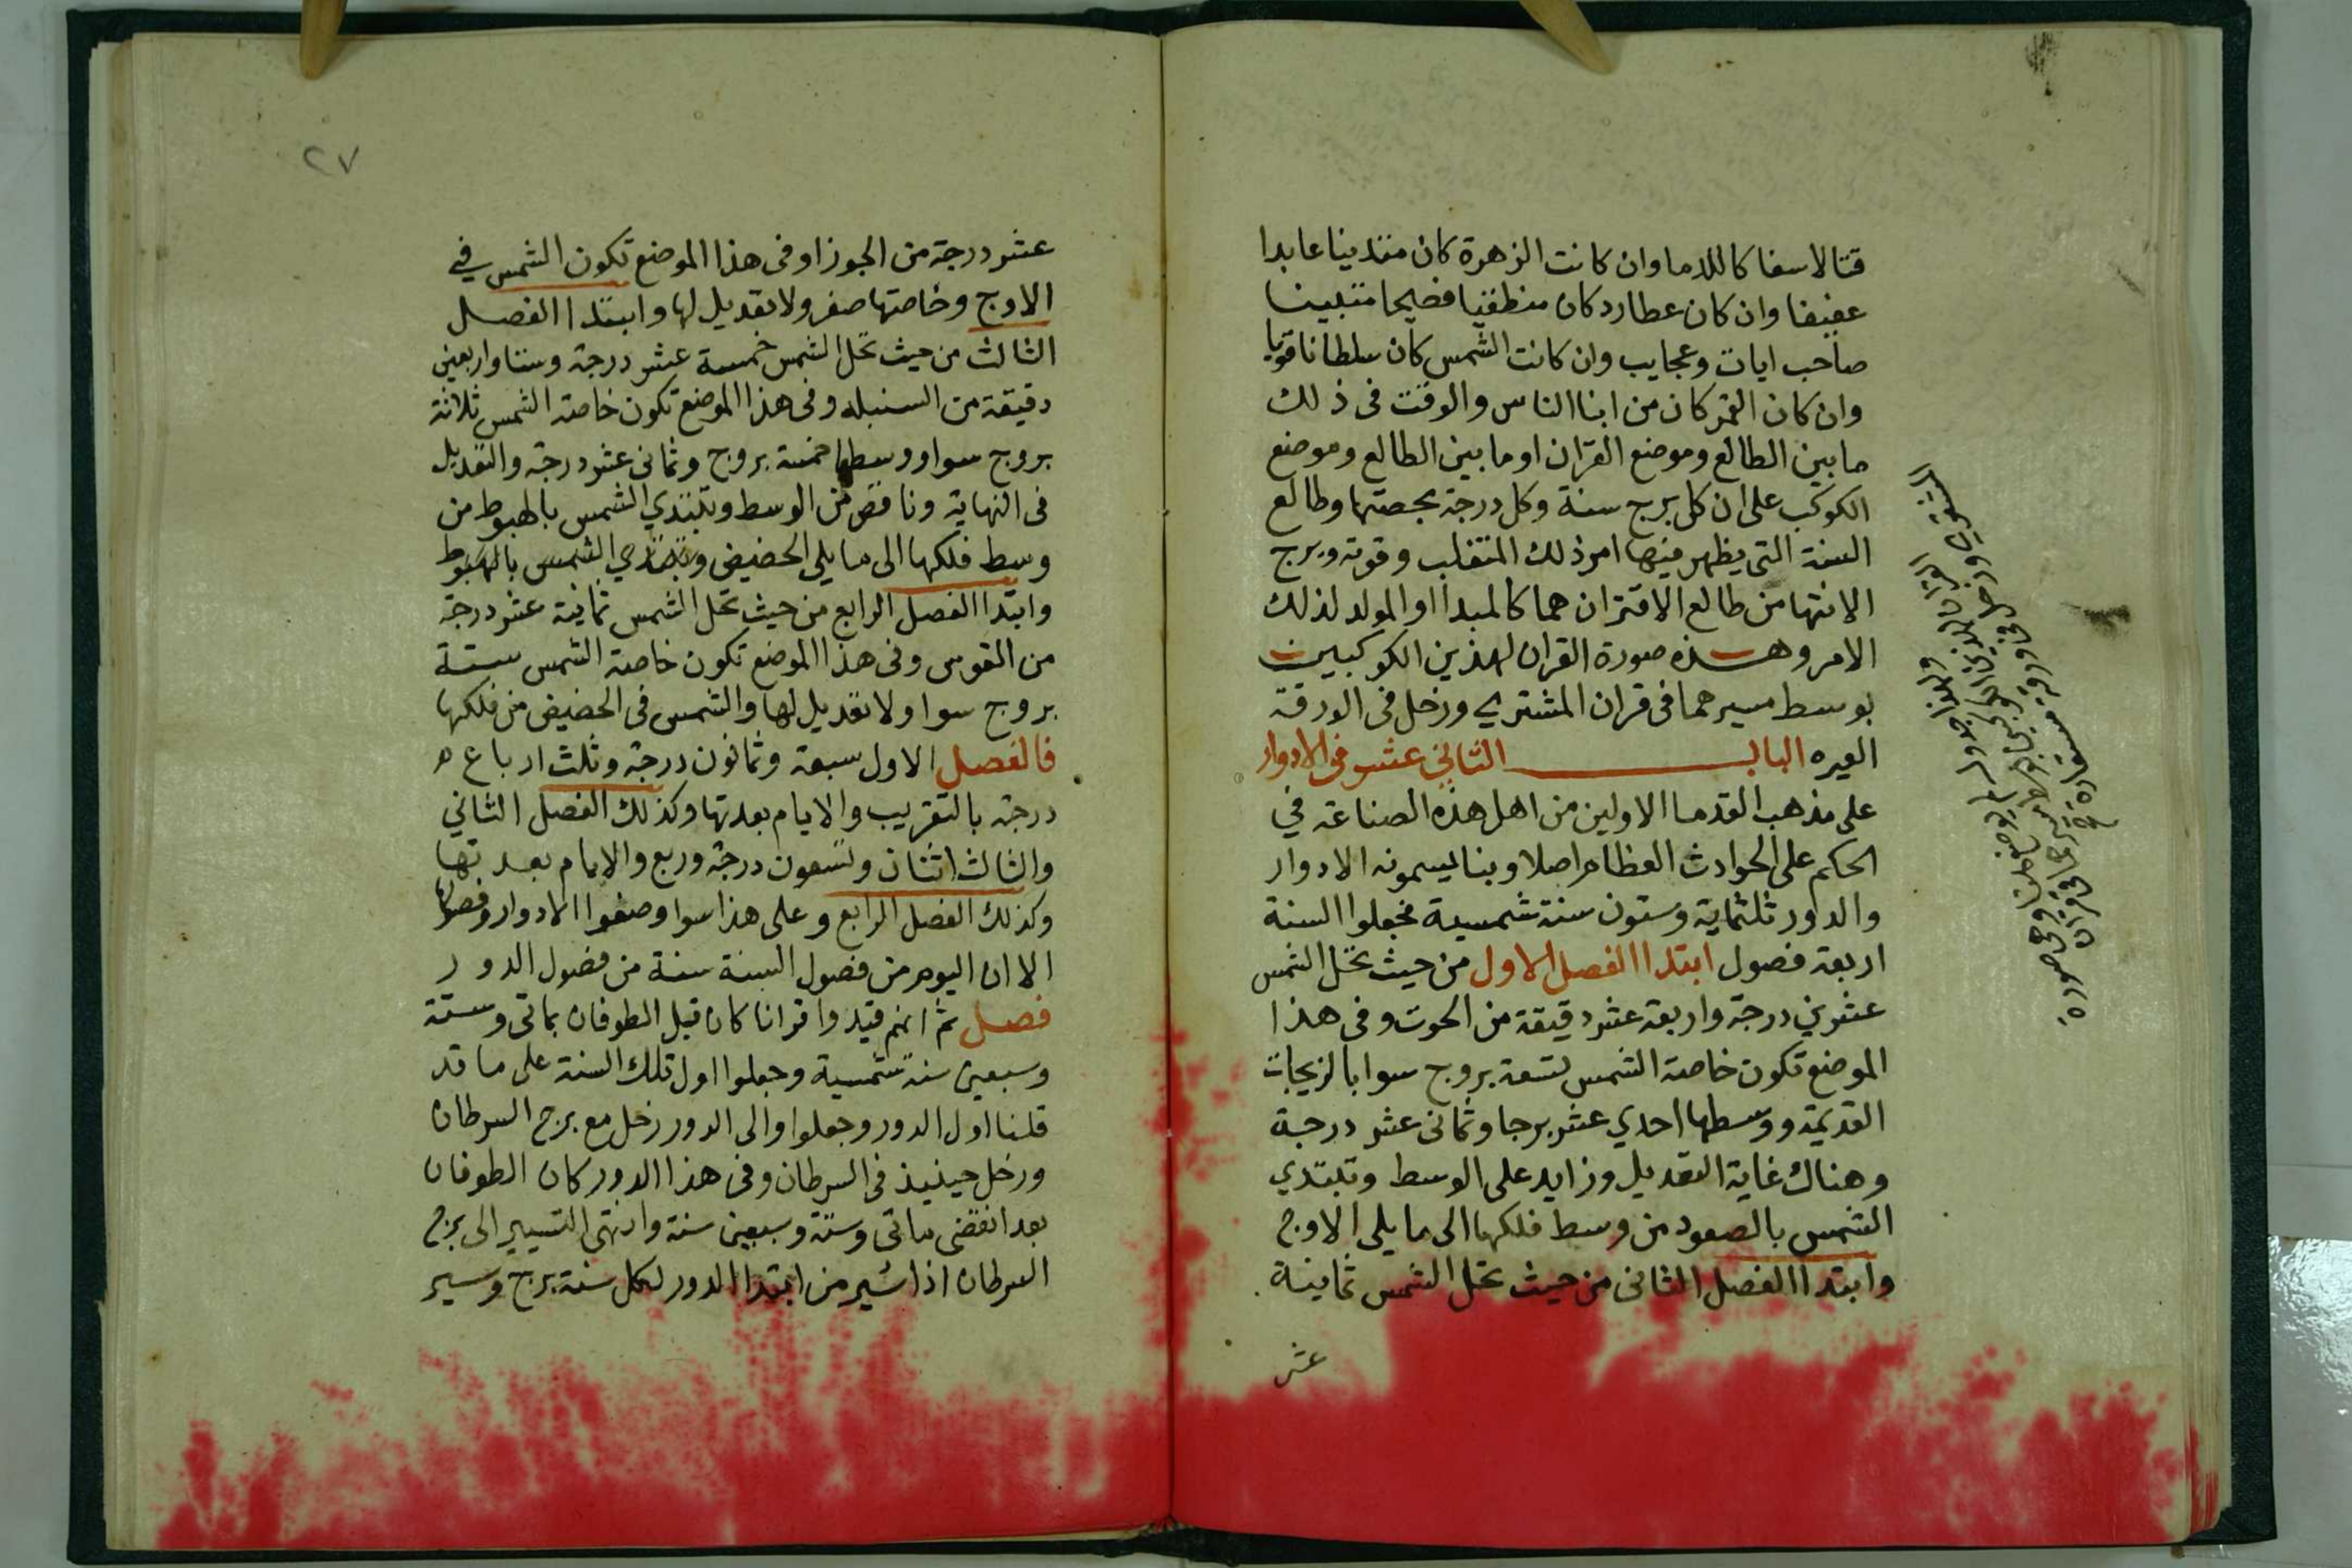 قتالا سفاكا للدما وان كانت الزهرة كان متدينا عابدا
عفيفا وان كان عطارد كان منطقيا فصيحا متبينا
صاحب ايات وعجايب وان كانت الشمس كان سلطانا قويا
وان كان القمر كان من ابنا الناس والوقت فى ذلك
ما بين الطالع وموضع القران او ما بين الطالع وموضع
الكوكب على ان كل برج سنة وكل درجة بحصتها وطالع
السنة التى يظهر فيها امر ذلك المتغلب وقوته وبرج
الانتها من طالع الاقتران هما كالمبدا او المولد لذلك
الامر وهذه صورة القران لهذين الكوكبين
بوسط مسيرهما فى قران المشتري وزحل فى الورقة
الغيره الباب الثاني عشر فى الادوار
على مذهب القدما الاولين من اهل هذه الصناعة في
الحكم على الحوادث العظام اصلا وبنا يسمونه الادوار
والدور ثلثماية وستون سنة شمسية فجعلوا السنة
اربعة فصول ابتدا الفصل الاول من حيث تحل الشمس
عشرين درجة واربعة عشر دقيقة من الحوت وفى هذا
الموضع تكون خاصة الشمس تسعة بروج سوا بالزيجات
القديمة ووسطها احدي عشر برجا وثمانى عشر درجة
وهناك غاية التعديل وزايد على الوسط وتبتدي
الشمس بالصعود من وسط فلكها الى ما يلى الاوج
وابتدا الفصل الثانى من حيث تحل الشمس ثمانية
عشر
٢٧
عشر درجة من الجوزا وفى هذا الموضع تكون الشمس في
الاوج وخاصتها صفر ولا تعديل لها وابتدا الفصل
الثالث من حيث تحل الشمس خمسة عشر درجة وستا واربعين
دقيقة من السنبله وفى هذا الموضع تكون خاصة الشمس ثلاثة
بروج سوا ووسطها خمسة بروج وثمانى عشر درجة والتعديل
فى النهاية وناقص من الوسط وتبتدي الشمس بالهبوط من
وسط فلكها الى ما يلي الحضيض وتبتدي الشمس بالهبوط
وابتدا الفصل الرابع من حيث تحل الشمس ثمانية عشر درجة
من القوس وفى هذا الموضع تكون خاصة الشمس ستة
بروج سوا ولا تعديل لها والشمس فى الحضيض من فلكها
فالفصل الاول سبعة وثمانون درجة وثلث ارباع
درجة بالتقريب والايام بعدتها وكذلك الفصل الثاني
والثالث اثنان وتسعون درجة وربع والايام بعدتها
وكذلك الفصل الرابع وعلى هذا سوا وضعوا الادوار وفصولها
الا ان اليوم من فصول السنة سنة من فصول الدور
فصل ثم انهم قيدوا قرانا كان قبل الطوفان بماتى وستة
وسبعين سنة شمسية وجعلوا اول تلك السنة على ما قد
قلنا اول الدور وجعلوا والى الدور زحل مع برج السرطان
وزحل حينيذ فى السرطان وفى هذا الدور كان الطوفان
بعد انقضى ماتى وستة وسبعين سنة وانتهى التسيير الى برج
السرطان اذا سُير من ابتدا الدور لكل سنة برج وسير